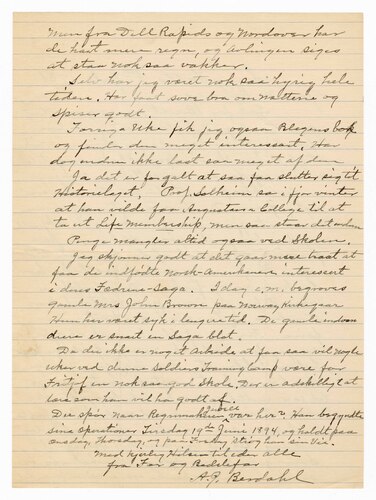 Men fra Dell Rapids og Nordover har
de havt mere regn, og Avlingen siges
at staa nok saa vakker.
Selv har jeg været nok saa hyrig hele
tiden. Har faat sove bra om Nætterne og
spiser godt.
Forrige Uke fik jeg ogsaa Blegens bok
og finder den meget interessant. Har
dog endnu ikke læst saa meget af den
Ja det er for galt at saa faa slutter sig til
Historielaget. Prof. Solheim sa i fjor vinter
at han vilde faa Augustana College til at
ta ut Life Membership, men saa staar det endnu
Penge mangler altid ogsaa ved Skolen.
Jeg skjønner godt at det gaar mere traat at
faa de indfødte Norsk-Amerikanere interesert
i deres Fædrene-Saga. I dag e.m. begraves
gamle Mrs John Brown paa Norway Kirkegaar
Hun har været syk i længere tid. De gamle indvan
drere er snart en Saga blot.
Da der ikke er noget Arbeide at faa saa vil nogle
uker ved denne Soldiers Training Camp være for
Fritjof en nok saa god Skole. Der er adskilligt at
lære som han vil ha godt af.
Du spør Naar Regnmakeren Jewell var her? Han begyndte
sine Operationer Tirsdag 19th June 1894 og holdt paa
Onsdag, Thorsdag, og paa Fredag
Med kjerlig Hilsen til eder alle
fra Far og Bedstefar
A. J. Berdahl